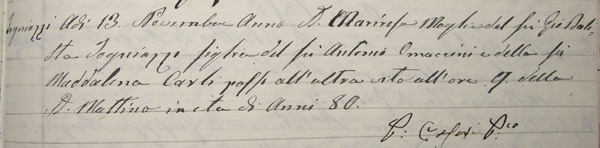 Togniazzi Adi 13. Novembre Anno D. Marinosa Moglie del fù Gio Bati-
sta Togniazzi figlia del fù Antonio Omaccini e della fù
Maddalena Carli passò all'altra vita all'ore 9 della
D. Mattino in età di Anni 80.
P: